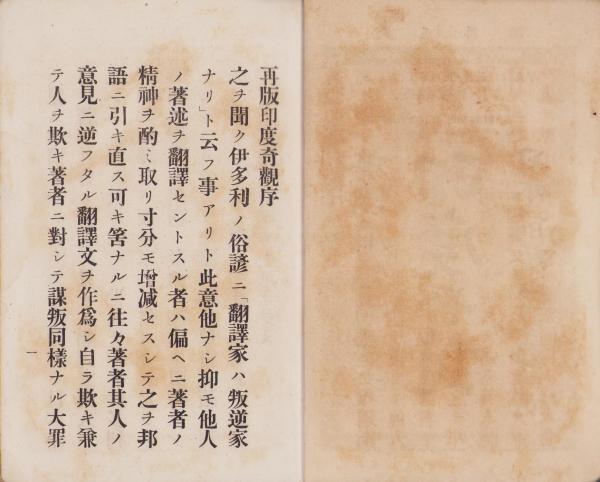 再版印度奇觀序
之ヲ聞ク伊多利ノ俗諺ニ「翻譯家ハ叛逆家
ナリ」ト云フ事アリト此意他ナシ抑モ他人
ノ著述ヲ翻譯セントスル者ハ偏ヘニ著者ノ
精神ヲ酌ミ取リ寸分モ增减セスシテ之ヲ邦
語ニ引キ直ス可キ筈ナルニ往々著者其人ノ
意見ニ逆フタル翻譯文ヲ作爲シ自ラ欺キ兼
テ人ヲ欺キ著者ニ對シテ謀叛同樣ナル大罪
一